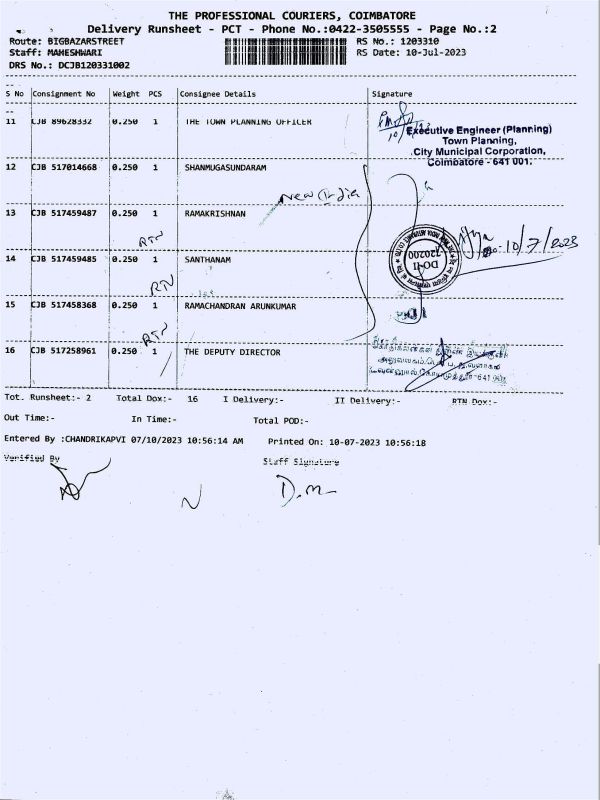 THE PROFESSIONAL COURIERS, COIMBATORE
Delivery Runsheet - PCT - Phone No.:0422-3505555 - Page No.:2
Route: BIGBAZARSTREET RS No.: 1203310
Staff: MAHESHWARI RS Date: 10-Jul-2023
DRS No.: DCJB120331002
S No Consignment No Weight PCS Consignee Details Signature
11 CJB 89628332 0.250 1 THE TOWN PLANNING OFFICER
Executive Engineer (Planning)
Town Planning,
City Municipal Corporation,
Coimbatore - 641 001.
12 CJB 517014668 0.250 1 SHANMUGASUNDARAM
New India
13 CJB 517459487 0.250 1 RAMAKRISHNAN
RTN
10/7/2023
14 CJB 517459485 0.250 1 SANTHANAM
DO-II
720200
RTN
15 CJB 517458368 0.250 1 RAMACHANDRAN ARUNKUMAR
RTN
16 CJB 517258961 0.250 1 THE DEPUTY DIRECTOR
Tot. Runsheet:- 2 Total Dox:- 16 I Delivery:- II Delivery:- RTN Dox:-
Out Time:- In Time:- Total POD:-
Entered By :CHANDRIKAPVI 07/10/2023 10:56:14 AM Printed On: 10-07-2023 10:56:18
Verified By Staff Signature
D.m